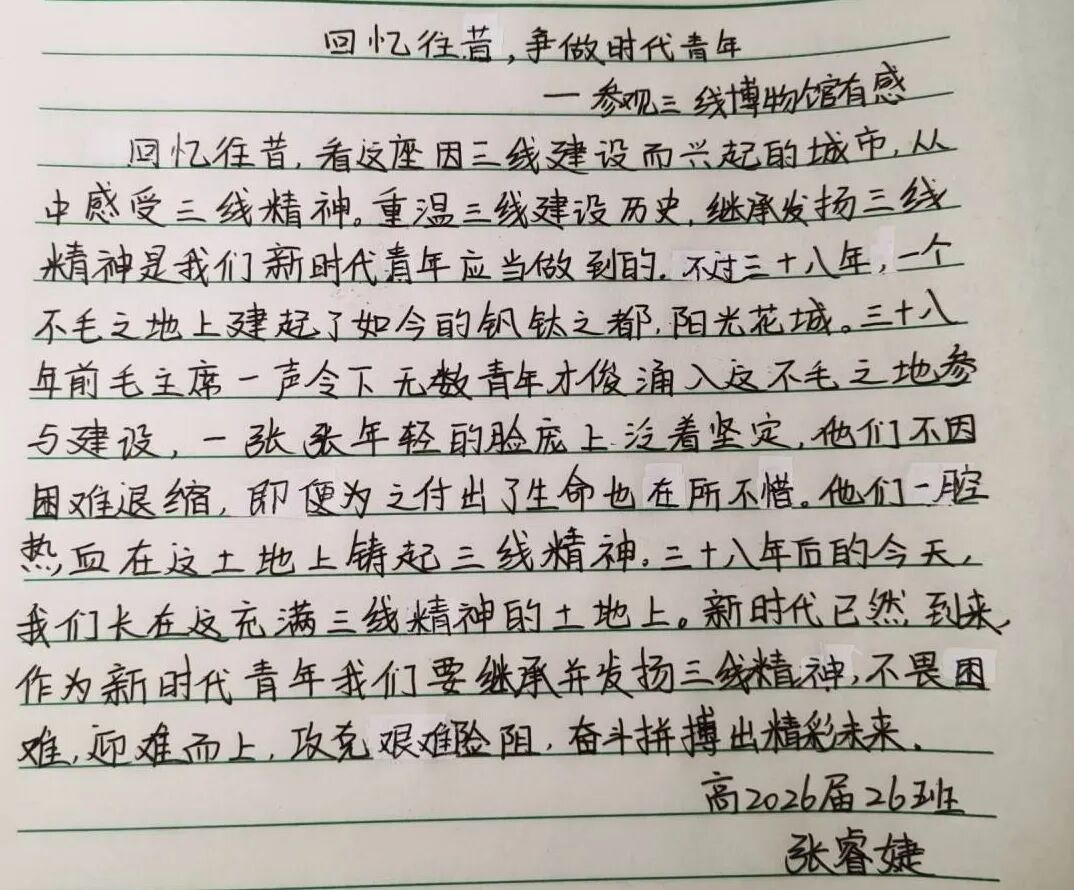 回忆往昔,争做时代青年
—参观三线博物馆有感
回忆往昔,看这座因三线建设而兴起的城市,从
中感受三线精神。重温三线建设历史,继承发扬三线
精神是我们新时代青年应当做到的.不过三十八年,一个
不毛之地上建起了如今的钒钛之都,阳光花城。三十八
年前毛主席一声令下无数青年才俊涌入这不毛之地参
与建设,一张张年轻的脸庞上泛着坚定,他们不因
困难退缩,即便为之付出了生命也在所不惜。他们一腔
热血在这土地上铸起三线精神.三十八年后的今天,
我们长在这充满三线精神的土地上。新时代已然到来,
作为新时代青年我们要继承并发扬三线精神,不畏困
难,迎难而上,攻克艰难险阻,奋斗拼搏出精彩未来.
高2026届26班
张睿婕